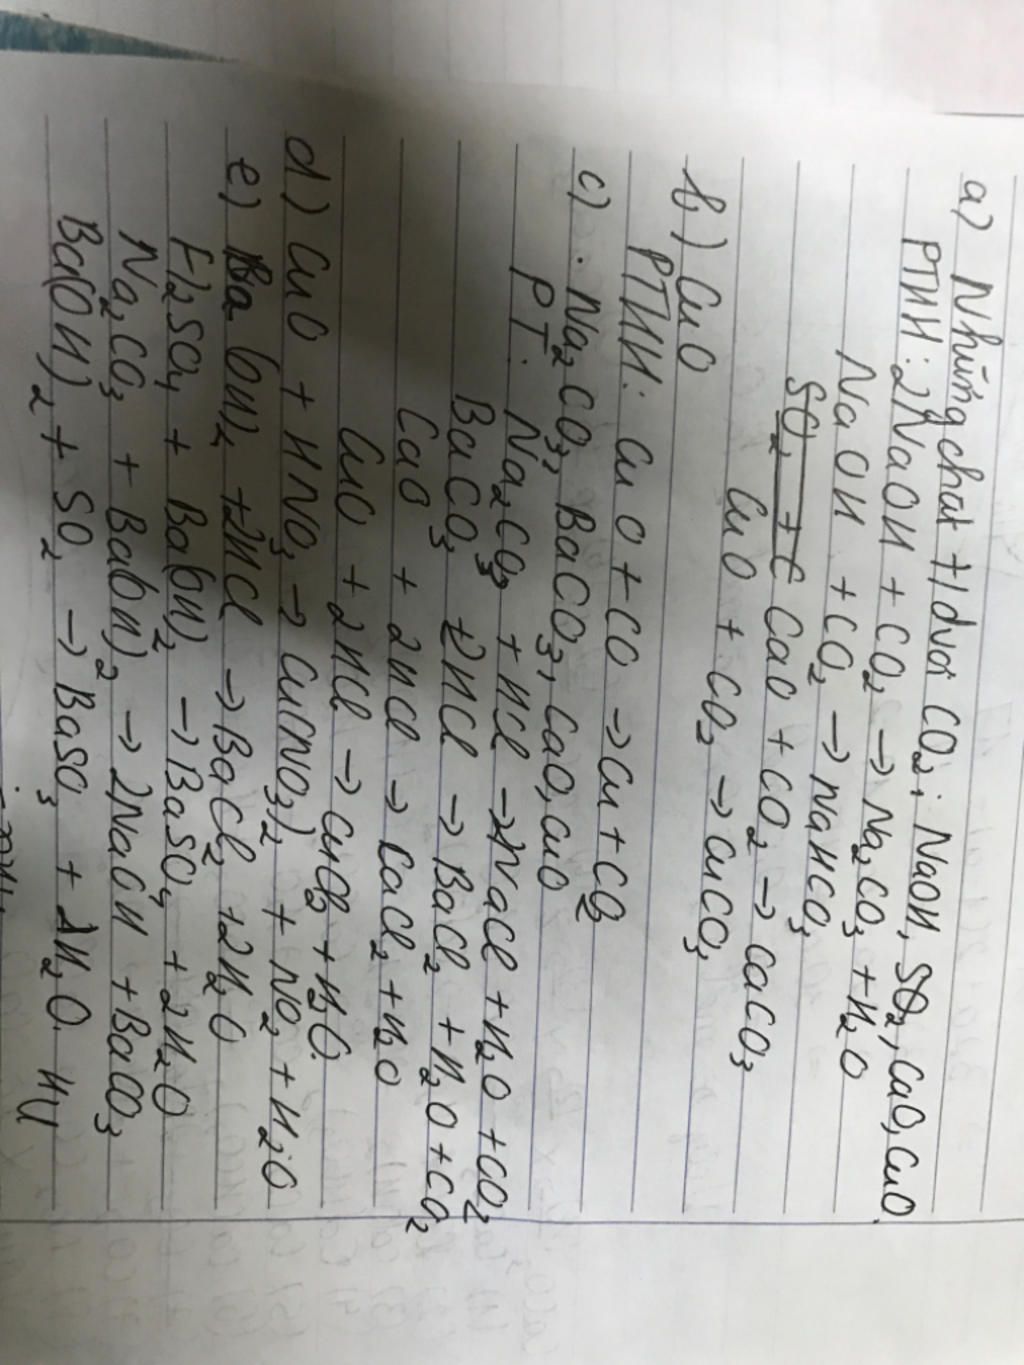 a) Những chất t/d với CO₂: NaOH, SO₂, CaO, CuO.
PTHH: 2NaOH + CO₂ → Na₂CO₃ + H₂O
NaOH + CO₂ → NaHCO₃
CaO + CO₂ → CaCO₃
CuO + CO₂ → CuCO₃
b) CuO
PTHH: CuO + CO → Cu + CO₂
c) . Na₂CO₃, BaCO₃, CaO, CuO
PT: Na₂CO₃ + HCl → 2NaCl + H₂O + CO₂
BaCO₃ + 2HCl → BaCl₂ + H₂O + CO₂
CaO + 2HCl → CaCl₂ + H₂O
CuO + 2HCl → CuCl₂ + H₂O.
d) CuO + HNO₃ → Cu(NO₃)₂ + NO₂ + H₂O
e) Ba(OH)₂ + 2HCl → BaCl₂ + 2H₂O
H₂SO₄ + Ba(OH)₂ → BaSO₄ + 2H₂O
Na₂CO₃ + Ba(OH)₂ → 2NaOH + BaCO₃
Ba(OH)₂ + SO₂ → BaSO₃ + H₂O